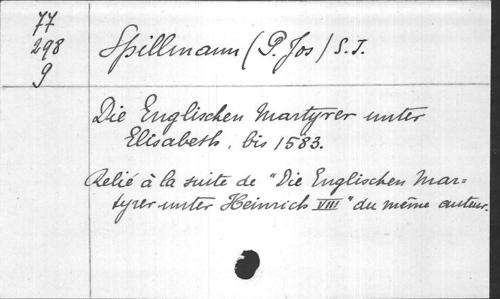 77
298
9
Spillmann (P. Jos) S.J.
Die Englischen Martyrer unter
Elisabeth, bis 1583.
Relié à la suite de "Die Englischen Mar=
tyrer unter Heinrich VIII" du même auteur.